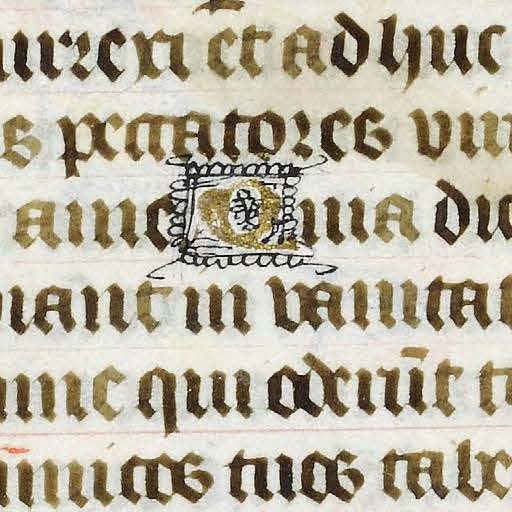 urrexi et adhuc
s peccatores viri
a me Quia dic
piant in vanitat
nne qui oderūt t
inimicos tuos tabe